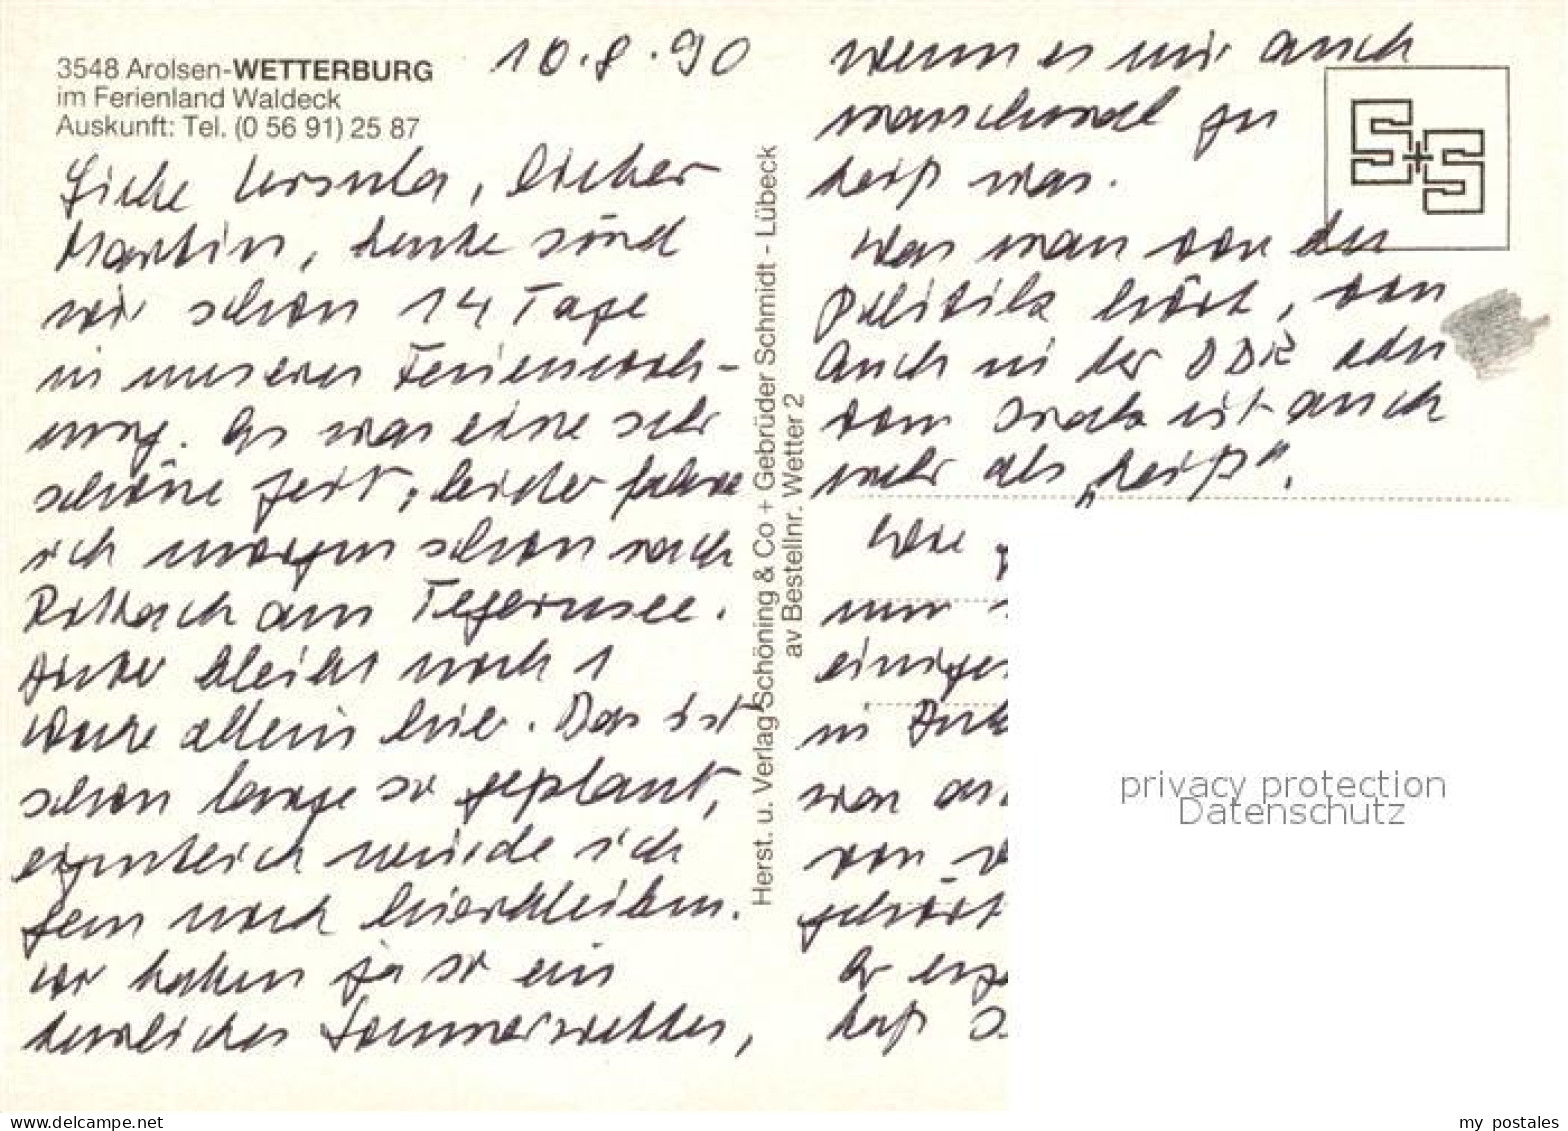 3548 Arolsen-WETTERBURG
im Ferienland Waldeck
Auskunft: Tel. (0 56 91) 25 87
10.8.90
Liebe Ursula, lieber
Martin, heute sind
wir schon 14 Tage
in unserer Ferienwoh-
nung. Es war eine sehr
schöne Zeit, leider fahre
ich morgen schon nach
Rottach am Tegernsee.
bleibt noch 1
Woche allein hier. Das ist
schon lange so geplant,
eigentlich würde ich
gern noch hierbleiben.
Wir haben ja so ein
herrliches Sommerwetter,
wenn es mir auch
manchmal zu
heiß war.
Was man von der
Politik hört, von
auch in der DDR oder
vom Irak ist auch
mehr als „heiß".
Wie
nun
einigen
in
war
von
gehört
Er
daß
Herst. u. Verlag Schöning & Co + Gebrüder Schmidt - Lübeck
av Bestellnr. Wetter 2
S+S
privacy protection
Datenschutz
www.delcampe.net
my_postales